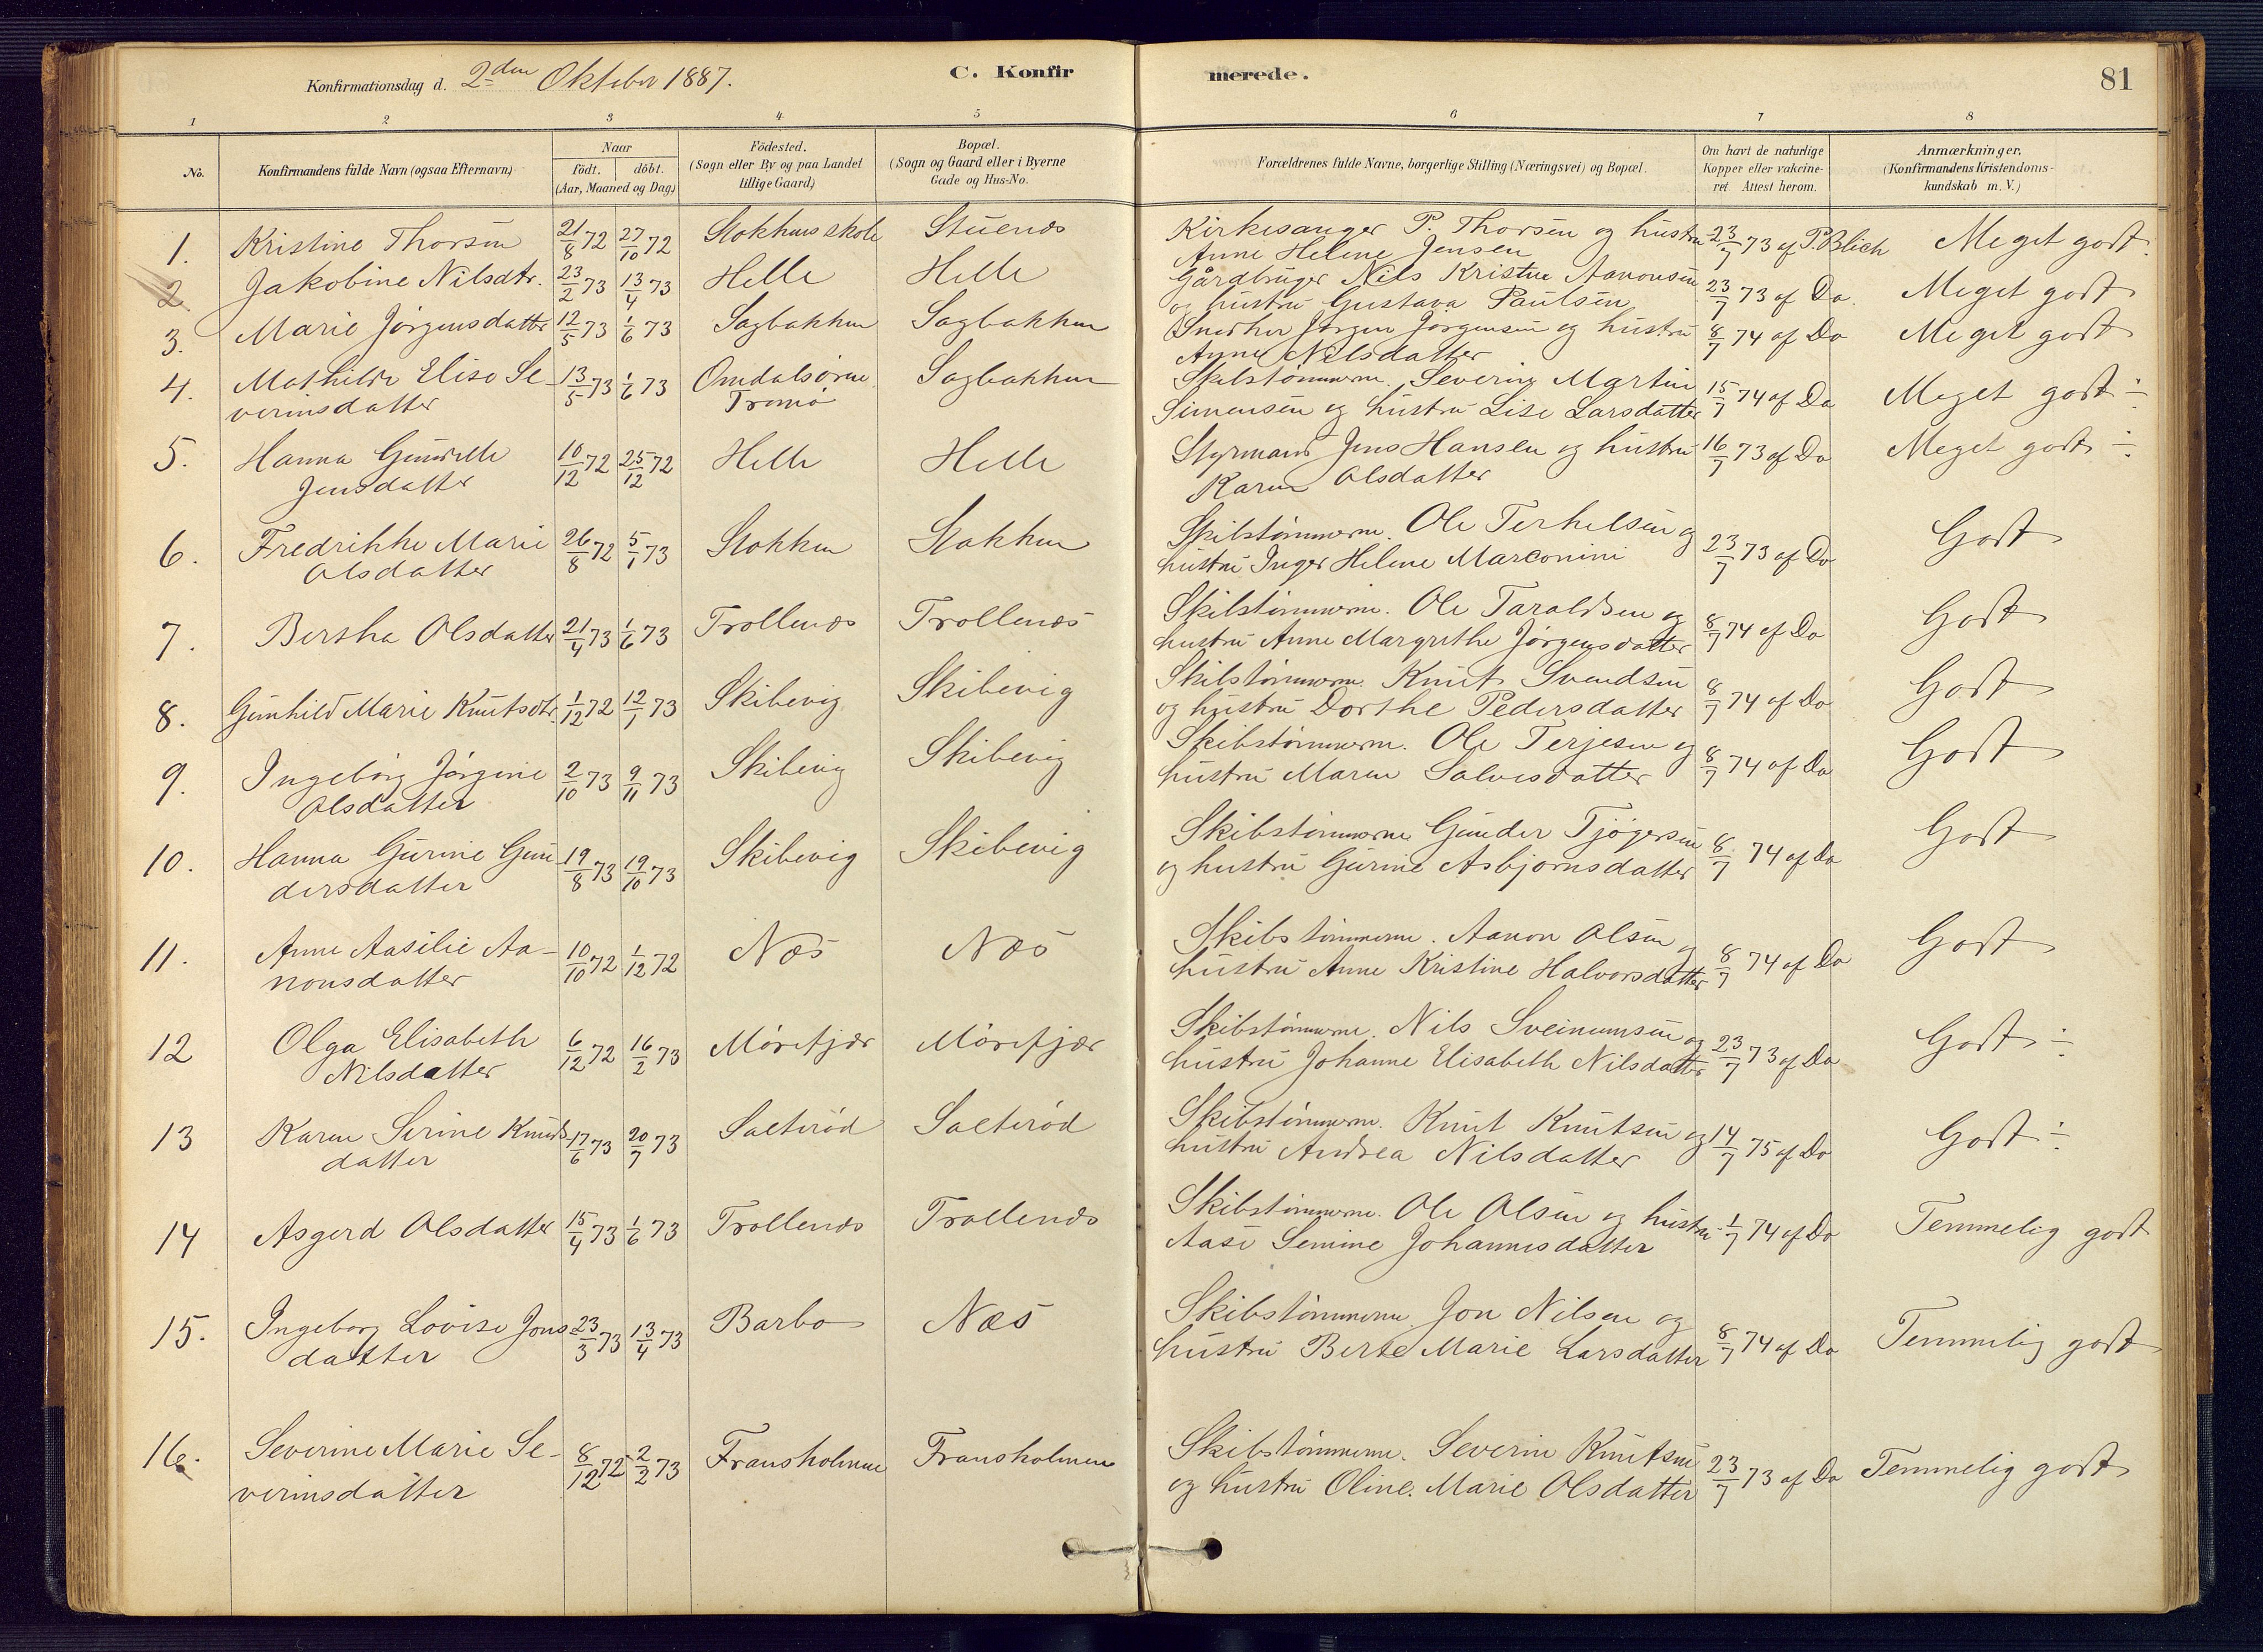 Konfirmationsdag d. 2den Oktober 1887. C. Konfirmerede. 81
1 2 3 4 5 6 7 8
No. Konfirmandens fulde Navn (ogsaa Efternavn) Naar født. døbt. (Aar, Maaned og Dag) Födested. (Sogn eller By og paa Landet tillige Gaard) Bopæl. (Sogn og Gaard eller i Byerne Gade og Hus-No. Forældrenes fulde Navne, borgerlige Stilling (Næringsvei) og Bopæl. Om havt de naturlige Kopper eller vakcineret Attest herom. Anmærkninger. (Konfirmandens Kristendomskundskab m. V.)
1. Kristine Thorsen 21/8 72 27/10 72 Stokkens skole Stuenes Kirkesanger P. Thorsen og hustru 23/7 73 af P. Blich Meget godt
Anne Helene Jensen
2 Jakobine Nilsdtr. 23/2 73 13/4 73 Helle Helle Gårdbruger Nils Kristen Aanonsen 23/7 73 af Do. Meget godt
og hustru Gustava Paulsen
3. Marie Jørgensdatter 12/5 73 1/6 73 Sagbakken Sagbakken Snedker Jørgen Jørgensen og hustru 8/7 74 af Do Meget godt
Anne Nilsdatter
4. Mathilde Elise Se- 13/5 73 1/6 73 Omdalsøren Sagbakken Skibstømmerm. Severin Martin 15/7 74 af Do Meget godt ÷
verinsdatter Tromø Simensen og hustru Lise Larsdatter
5. Hanna Gunelle 10/12 72 25/12 72 Helle Helle Styrmand Jens Hansen og hustru 16/7 73 af Do Meget godt ÷
Jensdatter Karen Olsdatter
6. Fredrikke Marie 26/8 72 5/1 73 Stokken Stokken Skibstømmerm. Ole Terkelsen og 23/7 73 af Do Godt
Olsdatter hustru Inger Helene Marconini
7. Bertha Olsdatter 21/4 73 1/6 73 Trollenæs Trollenæs Skibstømmerm. Ole Taraldsen og 8/7 74 af Do Godt
hustru Anne Margrethe Jørgensdatter
8. Gunhild Marie Knutsdtr. 1/12 72 12/1 73 Skibevig Skibevig Skibstømmerm. Knut Svendsen 8/7 74 af Do Godt
og hustru Dorthe Pedersdatter
9. Ingeborg Jørgine 2/10 73 9/11 73 Skibevig Skibevig Skibstømmerm. Ole Terjesen og 8/7 74 af Do Godt
Olsdatter hustru Maren Salvesdatter
10. Hanna Gurine Gun 19/8 73 19/10 73 Skibevig Skibevig Skibstømmerm Gunder Tjøgersen 8/7 74 af Do Godt
dersdatter og hustru Gurine Asbjørnsdatter
11. Anne Aasilie Aa- 10/10 72 1/12 72 Næs Næs Skibstømmerm. Aanon Olsen og 8/7 74 af Do Godt
nonsdatter hustru Anne Kristine Halvorsdatter
12 Olga Elisabeth 6/12 72 16/2 73 Mørefjær Mørefjær Skibstømmerm. Nils Sveinumsen og 23/7 73 af Do Godt ÷
Nilsdatter hustru Johanne Elisabeth Nilsdatter
13 Karen Serine Knuds- 17/6 73 20/7 73 Salterød Salterød Skibstømmerm. Knut Knutsen og 14/7 75 af Do Godt ÷
datter hustru Andrea Nilsdatter
14 Asgerd Olsdatter 15/4 73 1/6 73 Trollenæs Trollenæs Skibstømmerm. Ole Olsen og hustru 1/7 74 af Do Temmelig godt
Aase Semine Johannesdatter
15. Ingeborg Lovise Jons- 23/3 73 13/4 73 Barbo Næs Skibstømmerm Jon Nilsen og 8/7 74 af Do Temmelig godt
datter hustru Berte Marie Larsdatter
16. Severine Marie Se- 8/12 72 2/2 73 Fransholmen Fransholmen Skibstømmerm. Severin Knutsen 23/7 73 af Do Temmelig godt
verinsdatter og hustru Oline. Marie Olsdatter